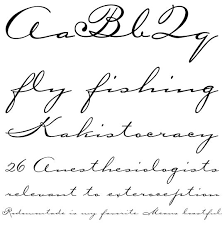 AaBbQq
fly fishing
Kakistocracy
26 Anesthesiologists
relevant to exteroception
is my favorite Means beautiful